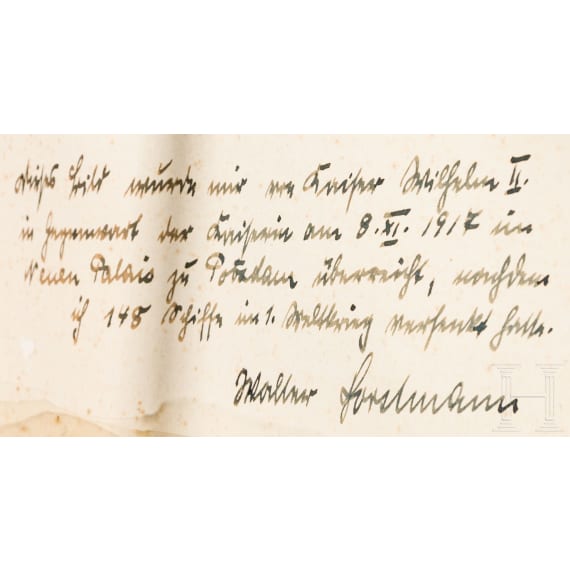 Dieses Bild wurde mir von Kaiser Wilhelm II.
in Gegenwart der Kaiserin am 8.XI.1917 im
Neuen Palais zu Potsdam überreicht, nachdem
ich 148 Schiffe im 1. Weltkrieg versenkt hatte.
Walter Forstmann
H